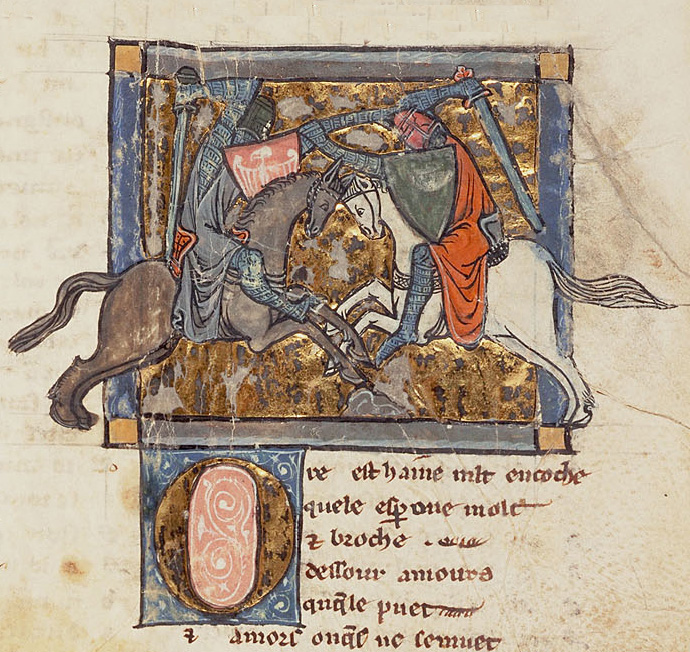 Ore est haine mlt en coche
quele esperone molt
⁊ broche
dessour amours
quele puet
⁊ amors onques ne se muet